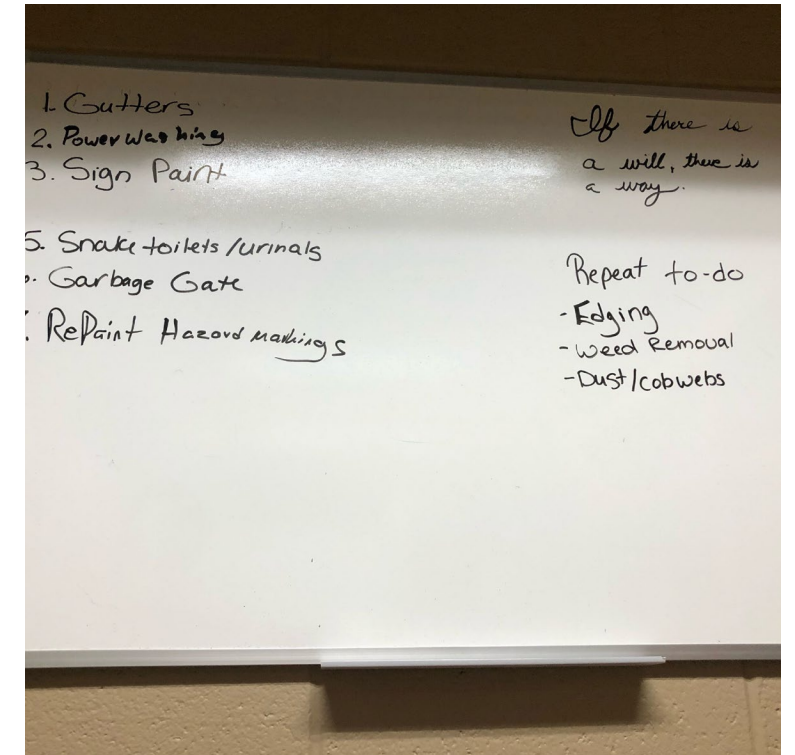 1. Gutters
2. Powerwashing
3. Sign Paint
5. Snake toilets/urinals
. Garbage Gate
. RePaint Hazard markings
If there is
a will, there is
a way.
Repeat to-do
- Edging
- Weed Removal
- Dust/cobwebs